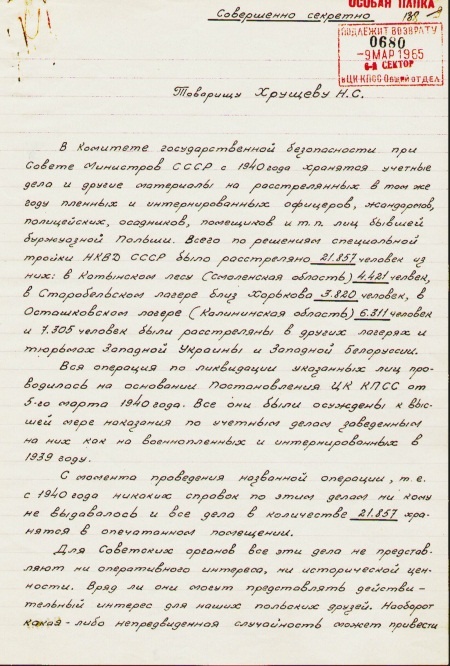 ОСОБАЯ ПАПКА
Совершенно секретно
ПОДЛЕЖИТ ВОЗВРАТУ
0680
-9 МАР 1965
6-й СЕКТОР
в ЦК КПСС Общий отдел
Товарищу Хрущеву Н.С.
В Комитете государственной безопасности при
Совете Министров СССР с 1940 года хранятся учетные
дела и другие материалы на расстрелянных в том же
году пленных и интернированных офицеров, жандармов,
полицейских, осадников, помещиков и т.п. лиц бывшей
буржуазной Польши. Всего по решениям специальной
тройки НКВД СССР было расстреляно 21.857 человек из
них: в Катынском лесу (Смоленская область) 4.421 человек,
в Старобельском лагере близ Харькова 3.820 человек, в
Осташковском лагере (Калининская область) 6.311 человек
и 7.305 человек были расстреляны в других лагерях и
тюрьмах Западной Украины и Западной Белоруссии.
Вся операция по ликвидации указанных лиц про-
водилась на основании Постановления ЦК КПСС от
5-го марта 1940 года. Все они были осуждены к выс-
шей мере наказания по учетным делам заведенным
на них как на военнопленных и интернированных в
1939 году.
С момента проведения названной операции, т.е.
с 1940 года никаких справок по этим делам никому
не выдавалось и все дела в количестве 21.857 хра-
нятся в опечатанном помещении.
Для Советских органов все эти дела не представ-
ляют ни оперативного интереса, ни исторической цен-
ности. Вряд ли они могут представлять действи-
тельный интерес для наших польских друзей. Наоборот
какая-либо непредвиденная случайность может привести